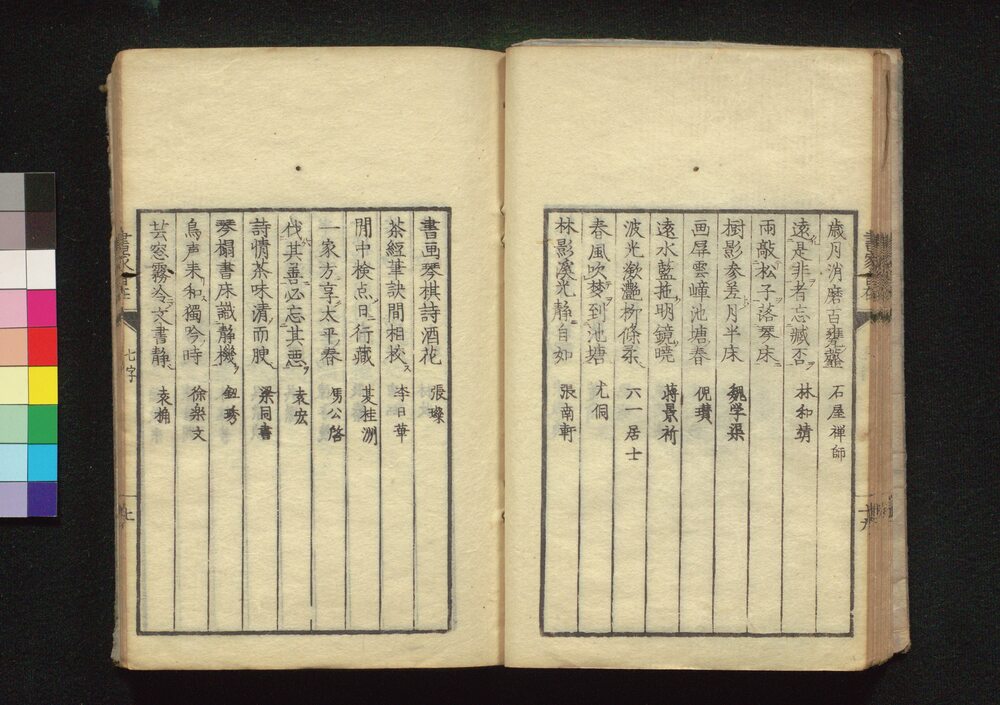 歳月消磨百甕虀 石屋禅師
遠是非者忘臧否 林和靖
雨敲松子落琴床
樹影参差月半床 魏学渠
画屏雲嶂池塘春 倪瓚
遠水藍拖明鏡暁 蒋景祈
波光激灔柳條柔 六一居士
春風吹夢到池塘 尤侗
林影溪光静自如 張南軒
書画琴棋詩酒花 張璨
茶經筆訣間相校 李日華
閒中検点日行藏
一家方享太平春 馬公啓
伐其善必忘其悪 袁宏
詩情茶味清而腴 梁同書
琴榻書床識静機 鈕琇
鳥声来和獨吟時 徐楽文
芸窓霧冷文書静 袁桷
七字